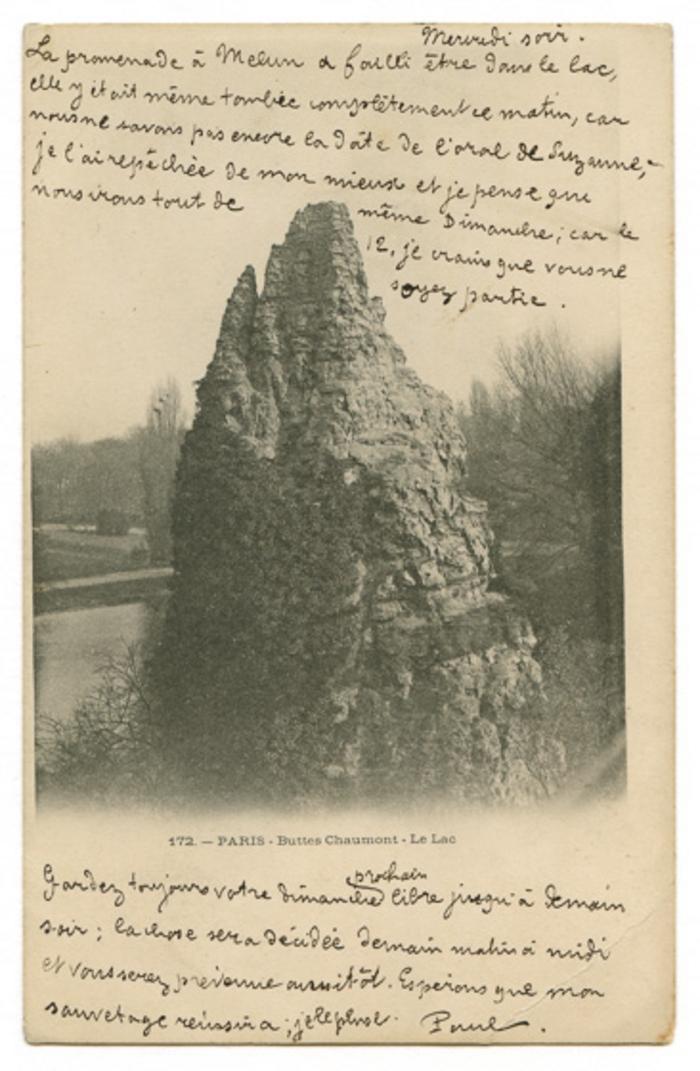 Mercredi soir.
La promenade à Melun a failli être dans le lac,
elle y était même tombée complètement ce matin, car
nous ne savons pas encore la date de l'oral de Suzanne,
je l'ai repêchée de mon mieux et je pense que
nous irons tout de
même Dimanche; car le
12, je crains que vous ne
soyez partie.
172. — PARIS - Buttes Chaumont - Le Lac
prochain
Gardez toujours votre dimanche libre jusqu'à demain
soir; la chose sera décidée demain matin à midi
et vous serez prévenue aussitôt. Espérons que mon
sauvetage réussira; je le
Paul.